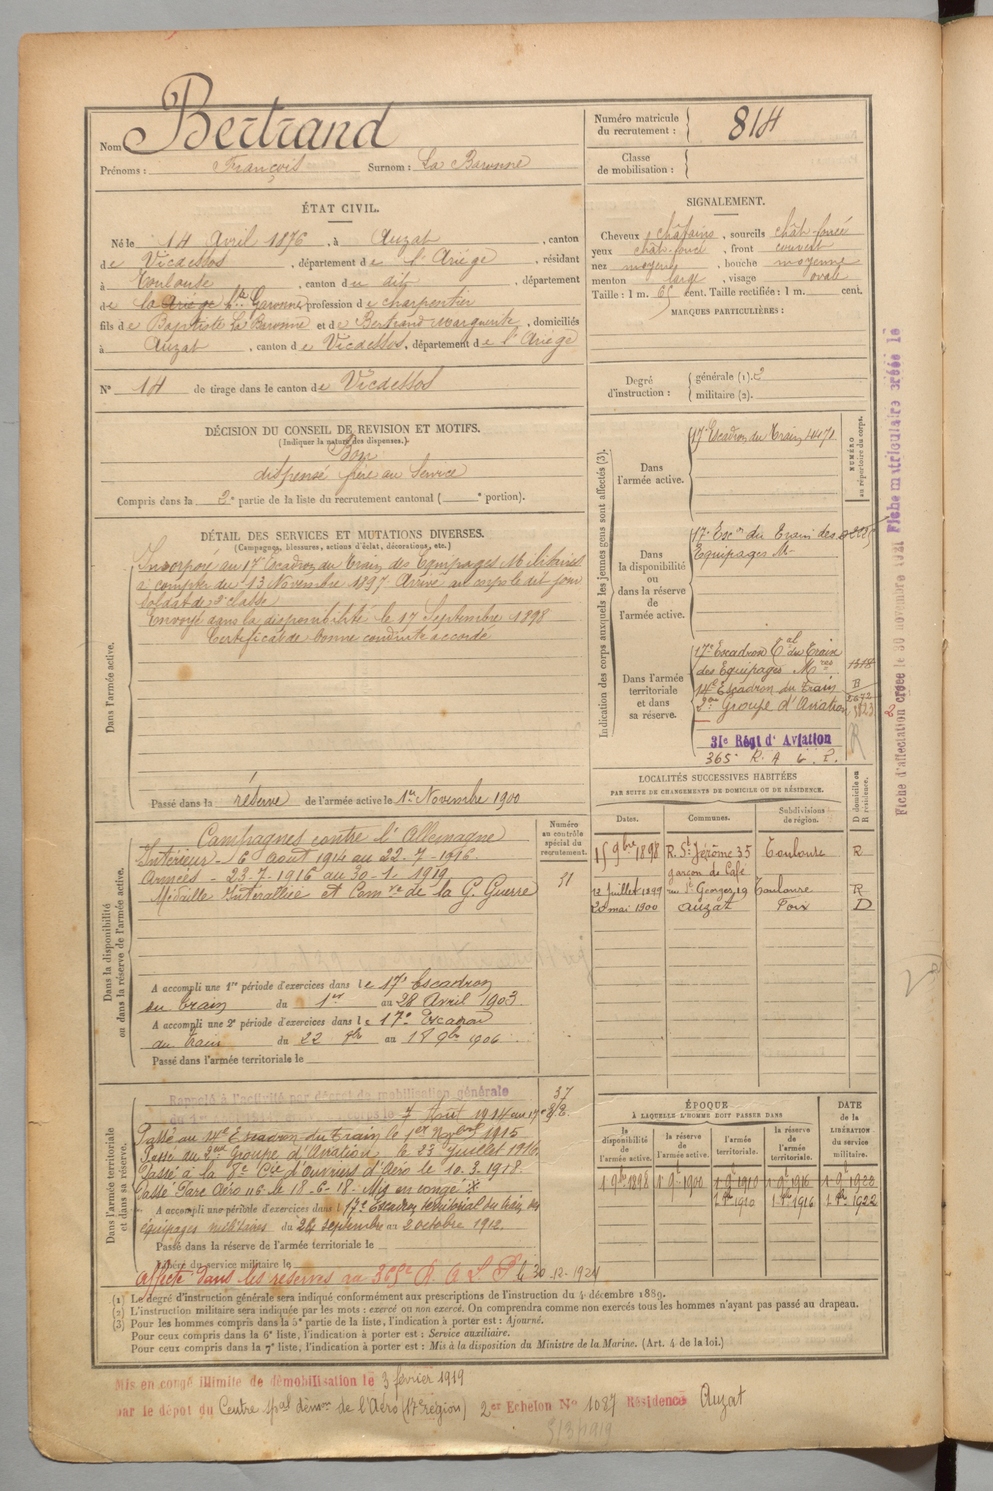 Nom Bertrand
Prénoms : François Surnom : La Baronne
Numéro matricule du recrutement : 814
Classe de mobilisation :
ÉTAT CIVIL.
Né le 14 Avril 1876, à Auzat, canton
de Vicdessos, département de l'Ariège, résidant
à Toulouse, canton du dit, département
de la Ariège Hte Garonne profession de charpentier
fils de Baptiste La Baronne et de Bertrand Marguerite, domiciliés
à Auzat, canton de Vicdessos, département de l'Ariège
N° 14 de tirage dans le canton de Vicdessos
SIGNALEMENT.
Cheveux châtains, sourcils chât-foncé
yeux chât-foncé, front couvert
nez moyenne, bouche moyenne
menton large, visage ovale
Taille : 1 m. 65 cent. Taille rectifiée : 1 m. cent.
MARQUES PARTICULIÈRES :
Degré d'instruction : générale (1).
militaire (2).
DÉCISION DU CONSEIL DE REVISION ET MOTIFS.
(Indiquer la nature des dispenses.)
Bon
dispensé frère au Service
Compris dans la 2e partie de la liste du recrutement cantonal ( e portion).
DÉTAIL DES SERVICES ET MUTATIONS DIVERSES.
(Campagnes, blessures, actions d'éclat, décorations, etc.)
Dans l'armée active.
Incorporé au 17e Escadron du Train des Equipages Militaires
à compter du 13 Novembre 1897 Arrivé au corps le dit jour
soldat de 2e classe
Envoyé dans la disponibilité le 17 Septembre 1898
Certificat de bonne conduite accordé
Passé dans la réserve de l'armée active le 1er Novembre 1900
Indication des corps auxquels les jeunes gens sont affectés (3).
NUMÉRO au répertoire du corps.
Dans l'armée active.
17e Escadron du Train 14471
Dans la disponibilité ou dans la réserve de l'armée active.
17e Escon du Train des
Equipages M-
Dans l'armée territoriale et dans sa réserve.
17e Escadron Tal du Train
des Equipages Mres 1318
14e Escadron du Train
2me Groupe d'Aviation
31e Régt d'Aviation
365e R. A. L. P.
Fiche matriculaire créée le
Fiche d'affectation créée le 30 novembre 1921
Dans la disponibilité ou dans la réserve de l'armée active.
Numéro au contrôle spécial du recrutement.
51
Campagnes contre l'Allemagne
Intérieur - 6 août 1914 au 22-7-1916.
Armées - 23-7-1916 au 30-1-1919
Médaille Interalliée et Comve de la G. Guerre
A accompli une 1re période d'exercices dans le 17e Escadron
du train du 1er au 28 Avril 1903
A accompli une 2e période d'exercices dans le 17e Escadron
du Train du 22 8bre au 18 9bre 1906
Passé dans l'armée territoriale le
LOCALITÉS SUCCESSIVES HABITÉES
PAR SUITE DE CHANGEMENTS DE DOMICILE OU DE RÉSIDENCE.
Dates. Communes. Subdivisions de région. D domicile ou R résidence.
15 9bre 1898 R. St Jérôme 35 Toulouse R
garçon de Café
12 Juillet 1899 rue St Georges 19 Toulouse R
20 mai 1900 Auzat Foix D
Dans l'armée territoriale et dans sa réserve.
Rappelé à l'activité par décret de mobilisation générale
37
Passé au 14e Escadron du Train le 1er Novbre 1915
Passé au 2me Groupe d'Aviation, le 23 Juillet 1916
Passé à la 8e Cie d'Ouvriers d'Aéro le 10.3.1918.
Passé Parc Aéro 116 le 18-6-18. Mis en congé
A accompli une période d'exercices dans le 17e Escadron territorial du train des
équipages militaires du 24 septembre au 2 octobre 1912.
Passé dans la réserve de l'armée territoriale le
Libéré du service militaire le
Affecté dans les réserves au 365e R. A. L. P. le 30-12-1924
ÉPOQUE
À LAQUELLE L'HOMME DOIT PASSER DANS
la disponibilité de l'armée active. la réserve de l'armée active. l'armée territoriale. la réserve de l'armée territoriale.
DATE de la LIBÉRATION du service militaire.
1 9bre 1898 1 9e 1900 1 9e 1910 1 9e 1916 1 9e 1922
1 8bre 1910 1 8bre 1916 1 8bre 1922
(1) Le degré d'instruction générale sera indiqué conformément aux prescriptions de l'instruction du 4 décembre 1889.
(2) L'instruction militaire sera indiquée par les mots : exercé ou non exercé. On comprendra comme non exercés tous les hommes n'ayant pas passé au drapeau.
(3) Pour les hommes compris dans la 5e partie de la liste, l'indication à porter est : Ajourné.
Pour ceux compris dans la 6e liste, l'indication à porter est : Service auxiliaire.
Pour ceux compris dans la 7e liste, l'indication à porter est : Mis à la disposition du Ministre de la Marine. (Art. 4 de la loi.)
Mis en congé illimité de démobilisation le 3 février 1919
par le dépôt du Centre spal démon de l'Aéro (17e région) 2er Echelon N° 1087 Résidence Auzat